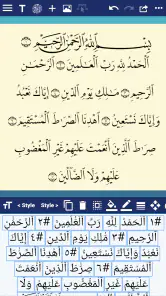 بِسْمِ ٱللَّهِ ٱلرَّحْمَٰنِ ٱلرَّحِيمِ ۝
ٱلْحَمْدُ لِلَّهِ رَبِّ ٱلْعَٰلَمِينَ ۝ ٱلرَّحْمَٰنِ
ٱلرَّحِيمِ ۝ مَٰلِكِ يَوْمِ ٱلدِّينِ ۝ إِيَّاكَ نَعْبُدُ
وَإِيَّاكَ نَسْتَعِينُ ۝ ٱهْدِنَا ٱلصِّرَٰطَ ٱلْمُسْتَقِيمَ ۝
صِرَٰطَ ٱلَّذِينَ أَنْعَمْتَ عَلَيْهِمْ غَيْرِ ٱلْمَغْضُوبِ
عَلَيْهِمْ وَلَا ٱلضَّآلِّينَ ۝
< Style
< Style >
#١ ٱلْحَمْدُ لِلَّهِ رَبِّ ٱلْعَٰلَمِينَ #٢ ٱلرَّحْمَٰنِ
ٱلرَّحِيمِ #٣ مَٰلِكِ يَوْمِ ٱلدِّينِ #٤ إِيَّاكَ
نَعْبُدُ وَإِيَّاكَ نَسْتَعِينُ #٥ ٱهْدِنَا ٱلصِّرَٰطَ
ٱلْمُسْتَقِيمَ #٦ صِرَٰطَ ٱلَّذِينَ أَنْعَمْتَ
عَلَيْهِمْ غَيْرِ ٱلْمَغْضُوبِ عَلَيْهِمْ وَلَا